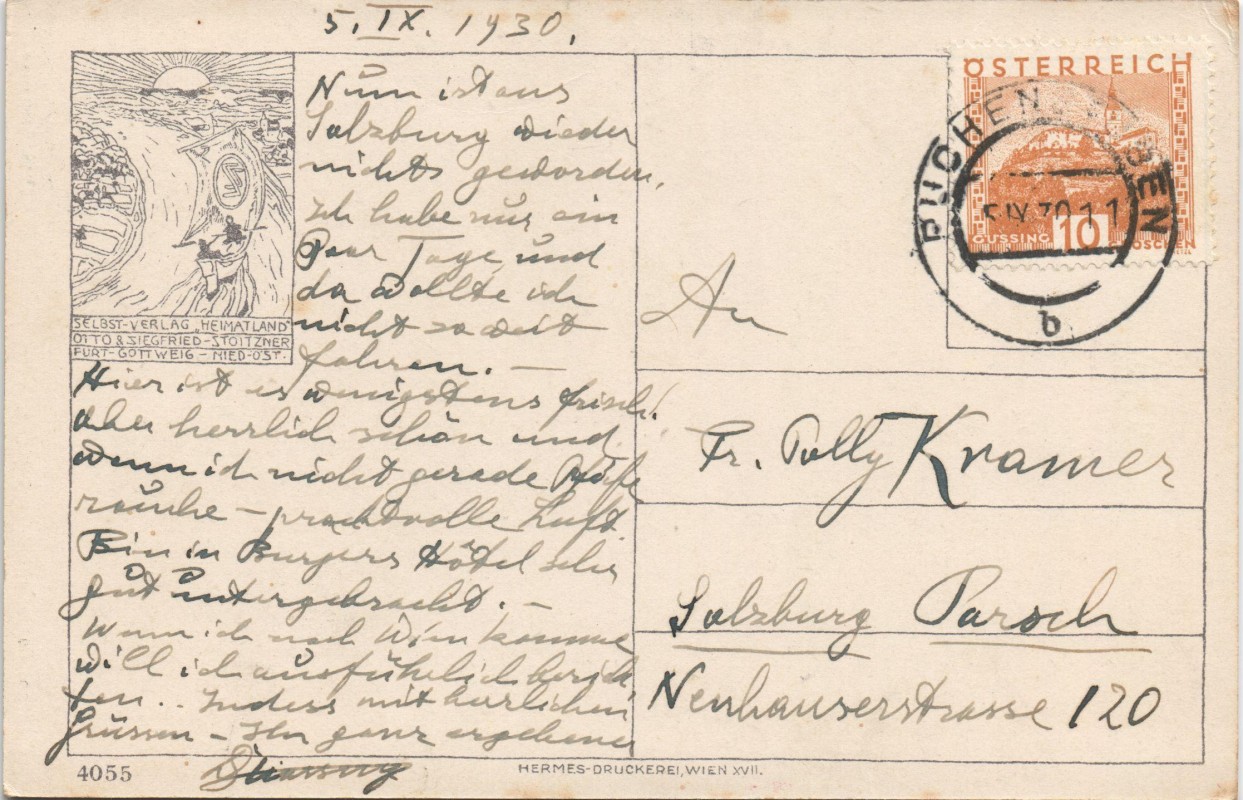 5. IX. 1930.
Nun ist aus
Salzburg wieder
nichts geworden.
Ich habe nur ein
Paar Tage und
da wollte ich
nicht so weit
fahren. —
Hier ist es wenigstens frisch.
aber herrlich schön und
wenn ich nicht gerade
rauche – prachtvolle Luft.
Bin in Burgers Hotel sehr
gut untergebracht. —
Wenn ich nach Wien komme
will ich ausführlich berich
ten.. Indess mit herzlichen
Grüssen – Ihr ganz ergebener
SELBST-VERLAG „HEIMATLAND"
OTTO & SIEGFRIED-STOITZNER
FURT-GOTTWEIG – NIED-ÖST.
4055
HERMES-DRUCKEREI, WIEN XVII.
ÖSTERREICH
GÜSSING 10 GROSCHEN
5.IX.30
b
An
Fr. Polly Kramer
Salzburg Parsch
Neuhauserstrasse 120